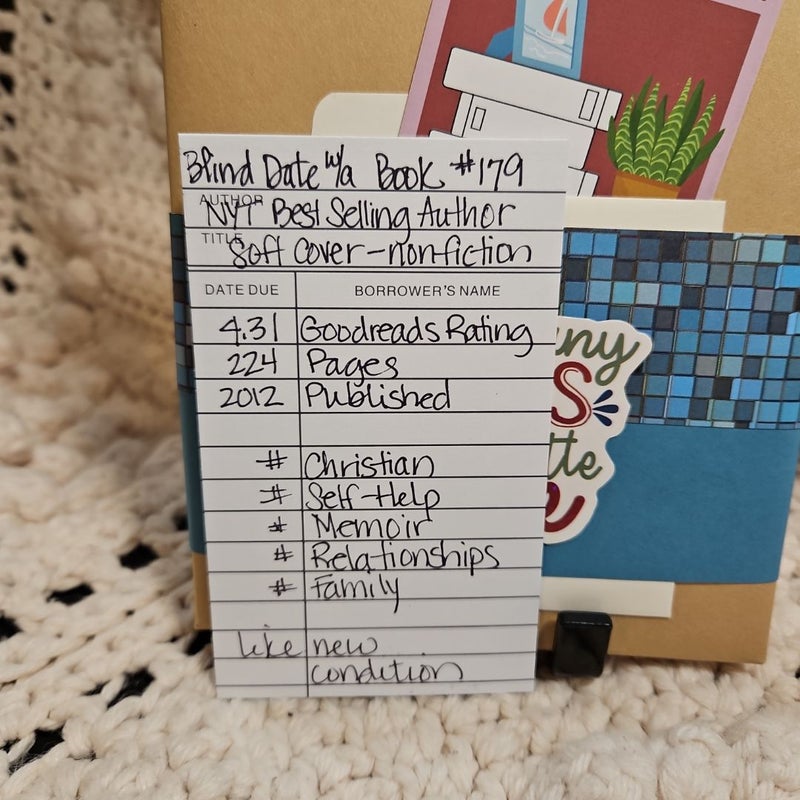 Blind Date w/a Book #179
AUTHOR
NYT Best Selling Author
TITLE
Soft Cover-nonfiction
DATE DUE BORROWER'S NAME
4.31 Goodreads Rating
224 Pages
2012 Published
# Christian
# Self-Help
# Memoir
# Relationships
# Family
like new
condition